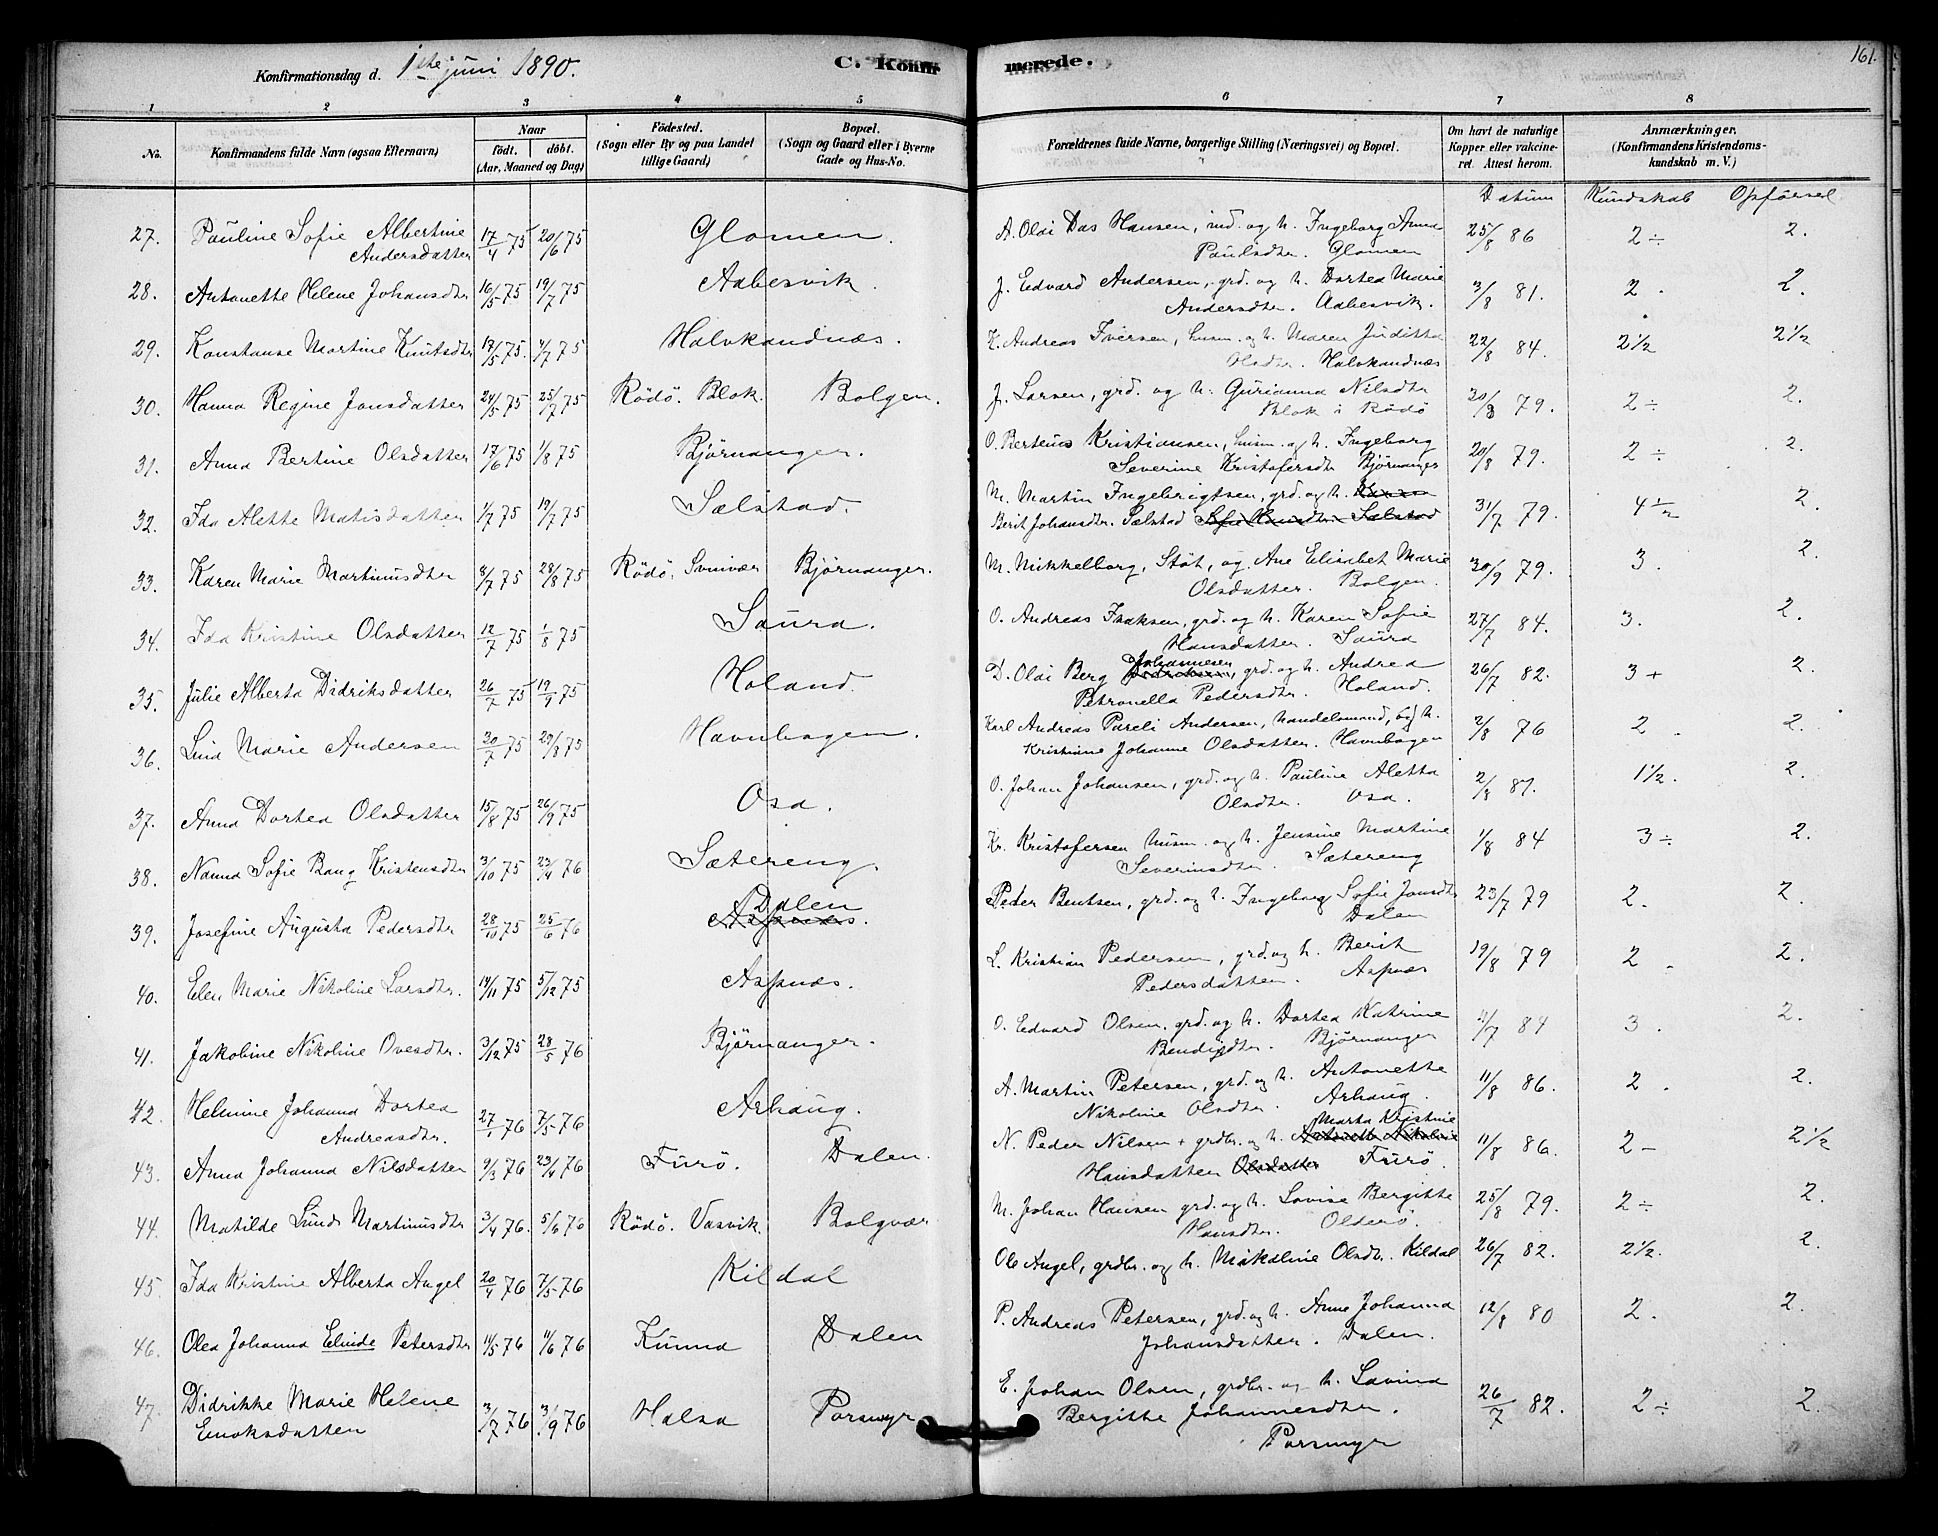 Konfirmationsdag d. 1ste juni 1890.
C. Konfirmerede.
161.
1 2 3 4 5 6 7 8
No.
Konfirmandens fulde Navn (ogsaa Efternavn)
Naar
født. døbt.
(Aar, Maaned og Dag)
Födested.
(Sogn eller By og paa Landet tillige Gaard)
Bopæl.
(Sogn og Gaard eller i Byerne Gade og Hus-No.
Forældrenes fulde Navne, borgerlige Stilling (Næringsvei) og Bopæl.
Om havt de naturlige Kopper eller vakcineret. Attest herom.
Anmærkninger.
(Konfirmandens Kristendomskundskab m. V.)
Datum Kundskab Opførsel
27. Pauline Sofie Albertine Andersdatter 17/4 75 20/6 75 Glomen. A. Olai Das Hansen, ind. og h. Ingeborg Anna Paulsdtr. Glomen 25/8 86 2÷ 2.
28. Antonette Helene Johansdtr 16/5 75 19/7 75 Aabesvik. J. Edvard Andersen, grd. og h. Dortea Marie Andersdtr. Aabesvik. 3/8 81. 2. 2.
29. Konstanse Martine Knutsdtr 18/5 75. 4/7 75 Halvkandnæs. K. Andreas Iversen, husm. og h. Maren Juditha Halvkandnæs 22/8 84. 2½ 2½
30. Hanna Regine Jonsdatter 24/5 75 25/7 75 Rödö. Blok. Bolgen. J. Larsen, grd. og h. Gurianna Nilsdtr Blok i Rödö 20/8 79. 2÷ 2.
31. Anna Bertine Olsdatter 17/6 75 1/8 75 Björnanger. O. Berteus Kristiansen, husm. og h. Ingeborg Severine Kristofersdtr Björnanger 20/8 79. 2÷ 2.
32. Ida Alette Matisdatter 1/7 75 19/7 75 Sælstad. M. Martin Ingebrigtsen, grd. og h. Berit Johansdtr. Sælstad 31/7 79. 4½ 2.
33. Karen Marie Martinusdtr 8/7 75 28/8 75 Rödö. Svinvær Björnanger. M. Mikkelborg, Støt, og Ane Elisabet Marie Olsdatter. Bolgen. 30/9 79. 3. 2.
34. Ida Kristine Olsdatter 12/7 75 1/8 75 Saura. O. Andreas Isaksen, grd. og h. Karen Sofie Hansdatter. Saura 27/7 84. 3. 2.
35. Julie Alberta Didriksdatter 26/7 75 19/9 75 Holand. D. Olai Berg Johannesen Didriksen, grd. og h. Andrea Petronella Pedersdtr. Holand. 26/7 82. 3+ 2.
36. Lina Marie Andersen 30/7 75 29/8 75 Havnbogen. Karl Andreas Pareli Andersen, handelsmand, og h. Kristiane Johanne Olsdatter. Havnbogen 2/8 76 2. 2.
37. Anna Dortea Olsdatter 15/8 75 26/9 75 Osa. O. Johan Johansen, grd. og h. Pauline Aletta Olsdtr. Osa. 2/8 87. 1½. 2.
38. Nanna Sofie Bang Kristensdtr 3/10 75 23/4 76 Sætereng. Kr. Kristofersen husm. og h. Jensine Martine Severinsdtr. Sætereng 1/8 84 3÷ 2.
39. Josefine Augusta Pedersdtr 28/10 75 25/6 76 Dalen Aspnæs. Peder Bentsen, grd. og h. Ingeborg Sofie Jonsdtr Dalen 23/7 79 2. 2.
40. Elen Marie Nikoline Larsdtr. 14/11 75 5/12 75 Aspnæs. L. Kristian Pedersen, grd. og h. Berit Pedersdatter. Aspnæs 19/8 79 2. 2.
41. Jakobine Nikoline Ovesdtr. 3/12 75 28/5 76 Björnanger. O. Edvard Olsen. grd. og h. Dortea Katrine Bendigsdtr. Björnanger 4/7 84 3. 2.
42. Helmine Johanna Dortea Andreasdtr. 27/1 76 7/5 76 Arhaug. A. Martin Petersen, grd. og h. Antonette Nikoline Olsdtr. Arhaug. 11/8 86. 2. 2.
43. Anna Johanna Nilsdatter 9/3 76 23/4 76 Furö. Dalen. N. Peder Nilsen + grdbr. og h. Marta Kristine Antonette Nikoline Hansdatter Olsdatter Furö. 11/8 86. 2- 2½
44. Matilde Lund Martinusdtr 3/4 76. 5/6 76 Rödö. Vasvik. Bolgvær M. Johan Hansen grd. og h. Lovise Bergitte Hansdtr. Olderö. 25/8 79. 2÷ 2.
45. Ida Kristine Alberta Angel 20/4 76 7/5 76 Kildal Ole Angel, grdbr. og h. Mikaline Olsdtr. Kildal 26/7 82. 2½. 2.
46. Olea Johanna Elinde Petersdtr 14/5 76 11/6 76 Kunna Dalen P. Andreas Petersen, grd. og h. Anne Johanna Johansdatter. Dalen. 12/8 80 2. 2.
47. Didrikke Marie Helene Enoksdatter 3/7 76 3/9 76 Halsa Porsmyr E. Johan Olsen, grdbr. og h. Lovina Bergitte Johannesdtr. Porsmyr 26/7 82. 2÷ 2.